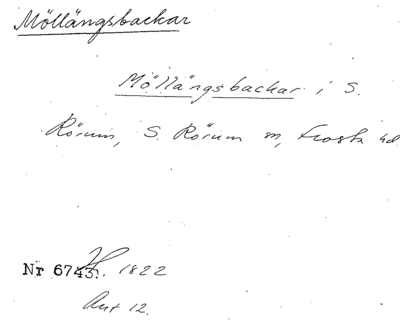 Möllängsbackar
Möllängsbackar i S.
Rörum, S. Rörum sn, Frosta hd
Nr 6743. 1822
Akt 12.